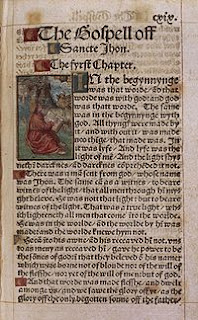 cxix.
The Gospell off
Sancte Jhon.
The fyrst Chapter.
IN the begynnynge
was that worde, and that
worde was with god: and god
was thatt worde. The same
was in the begynnynge with
god. All thyngs were made by
it, and with out it, was made
noo thige: that made was. In it
was lyfe. And lyfe was the
light of men. And the light shyneth
in darcknes, and darcknes comprehended it not.
There was a man sent from god, whose name
was Jhon. The same cam as a witnes, to beare
witnes of the light, that all men through him myght
beleve. He was not that light: but to beare
witnes of the light. That was a true light, which
lighteneth all men that come into the worlde.
He was in the worlde, and the worlde by him was
made: and the worlde knewe hym not.
He cam into his awne, and his receaved him not. vnto
as many as receaved him, gave he power to be
the sonnes of god: in that they beleved on his name:
which were borne not of bloude nor of the will of
the flesshe, nor yet of the will of men: but of god.
And that worde was made flesshe, and dwelt
amonge vs, and we sawe the glory off yt, as the
glory off the only begotten sonne off the father